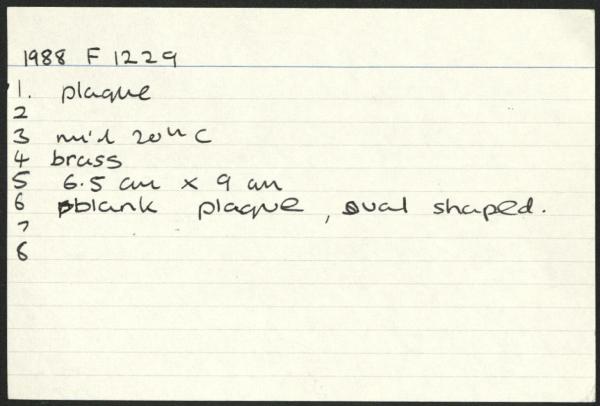 1988 F 1229
1. plaque
2
3 mid 20th C
4 brass
5 6.5 cm x 9 cm
6 blank plaque, oval shaped.
7
8